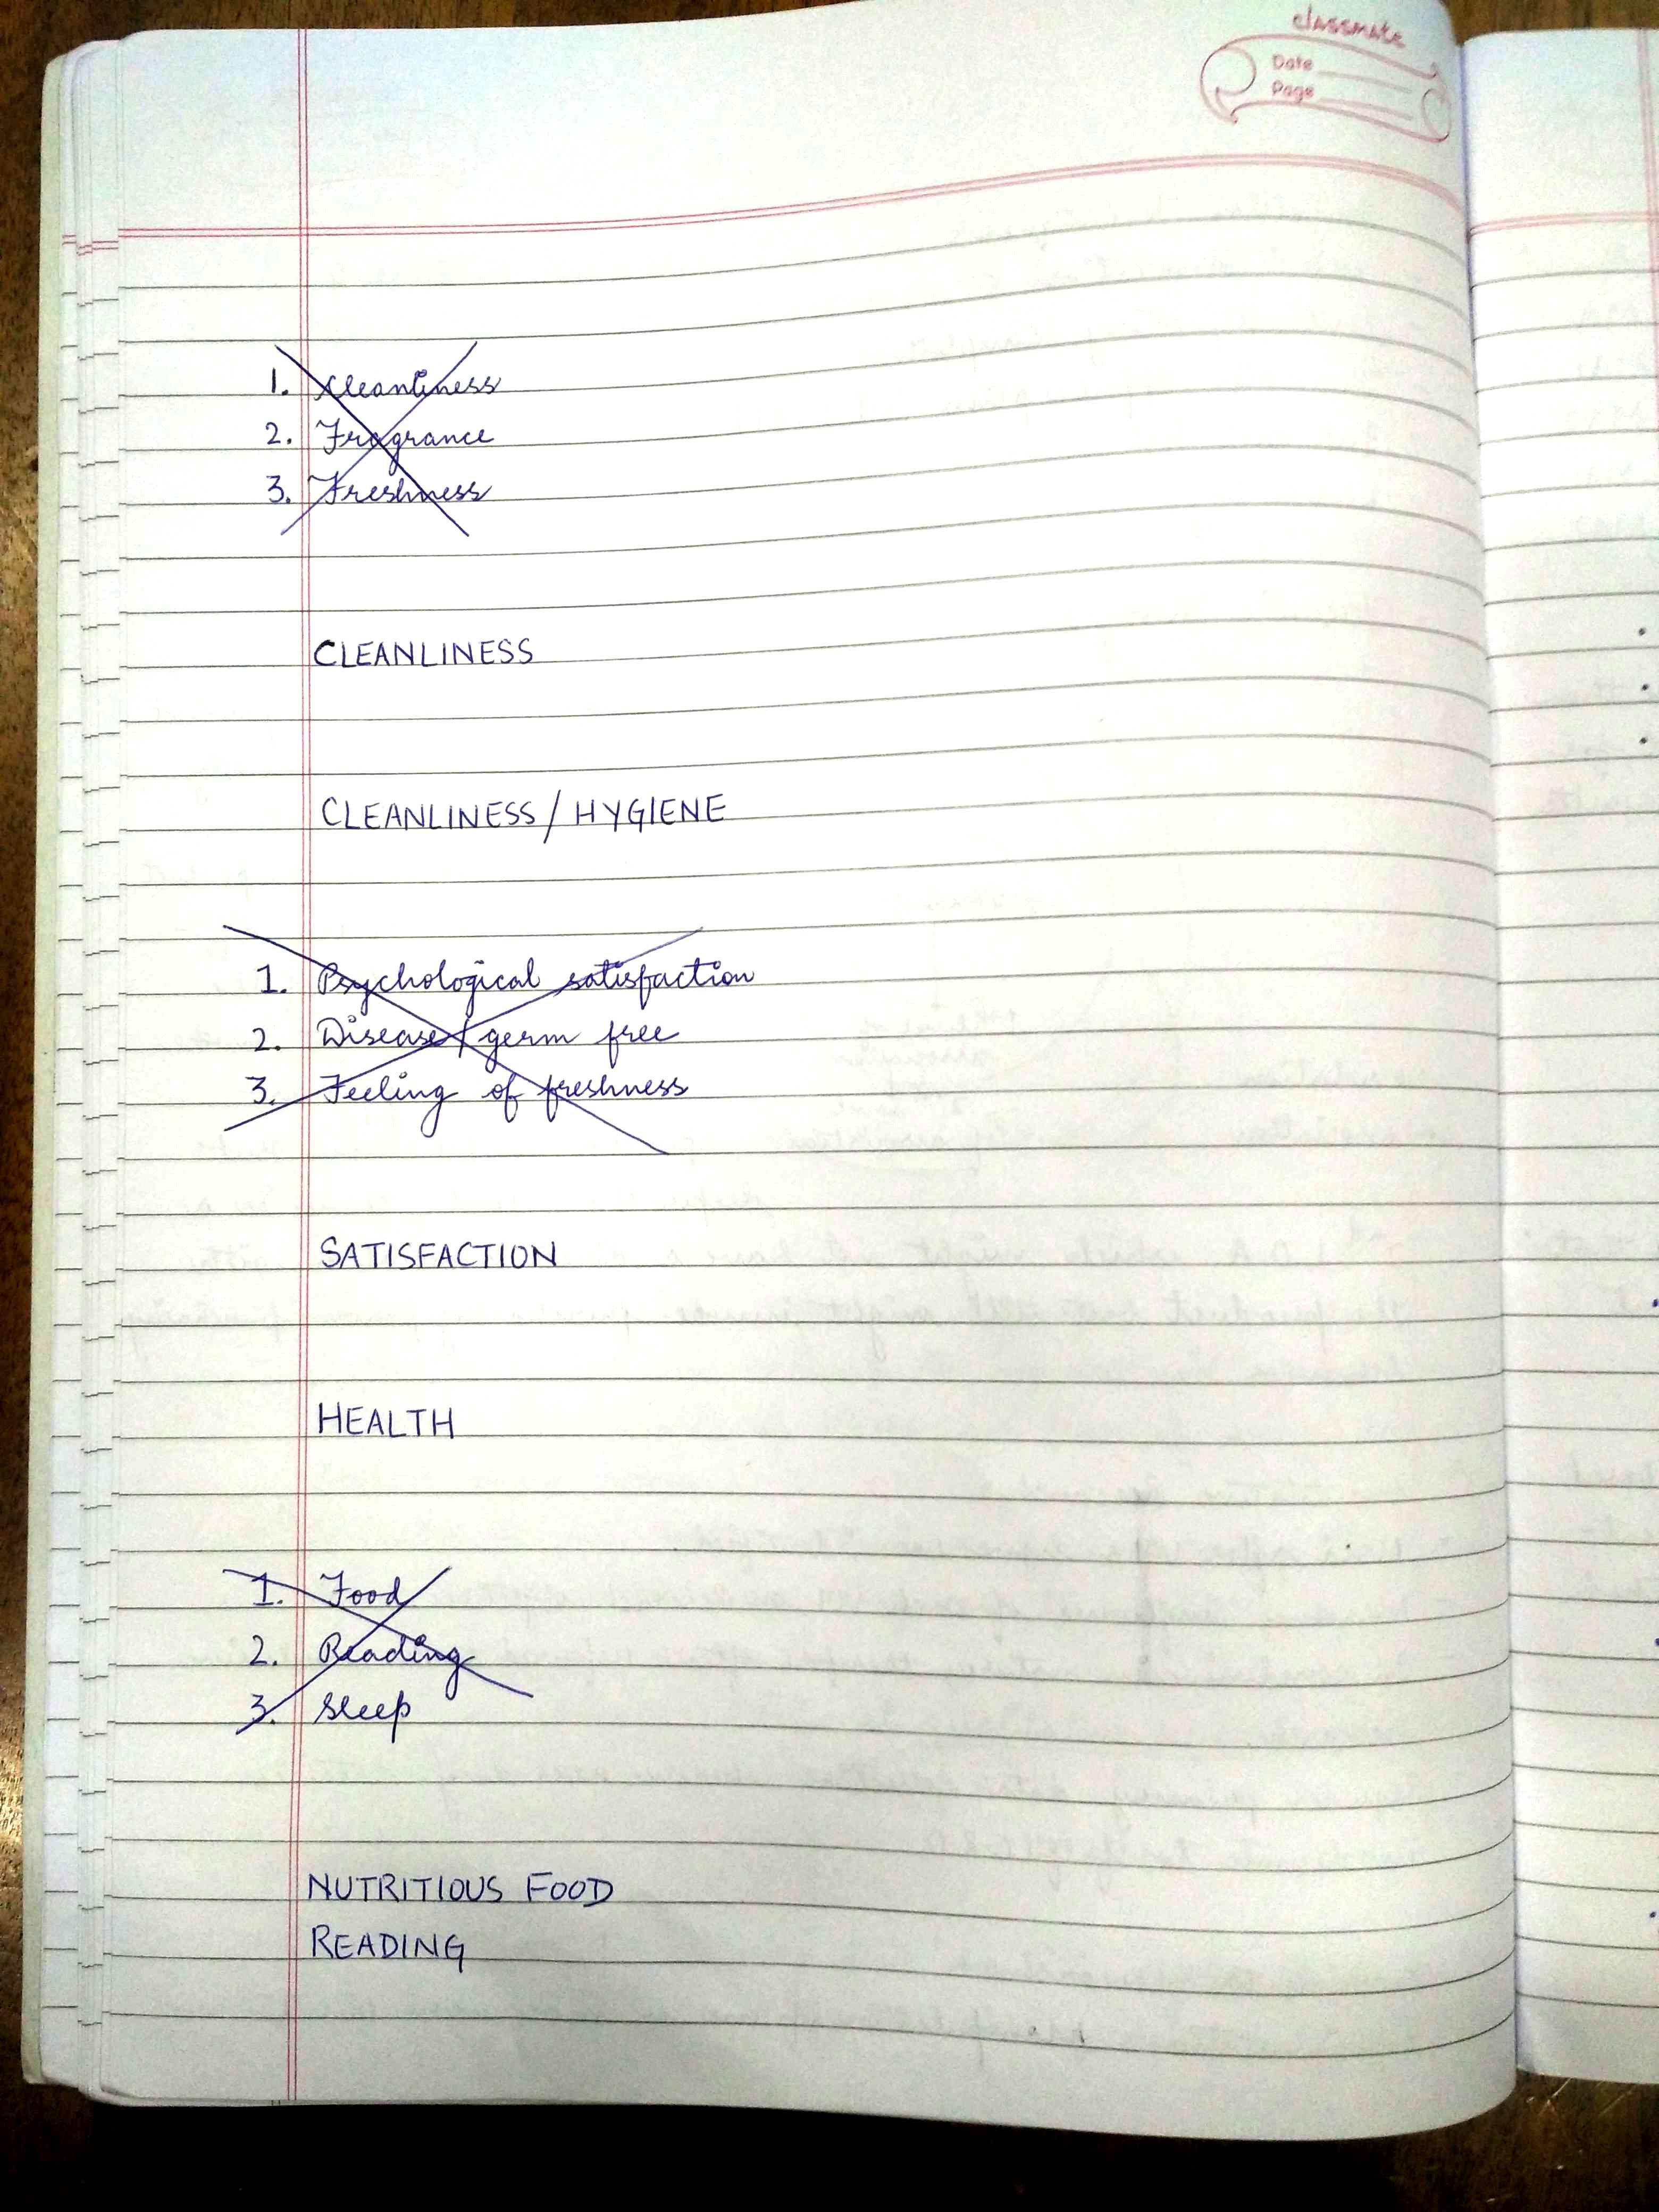 classmate
Date
Page
1. Cleanliness
2. Fragrance
3. Freshness
CLEANLINESS
CLEANLINESS / HYGIENE
1. Psychological satisfaction
2. Disease / germ free
3. Feeling of freshness
SATISFACTION
HEALTH
1. Food
2. Reading
3. Sleep
NUTRITIOUS FOOD
READING